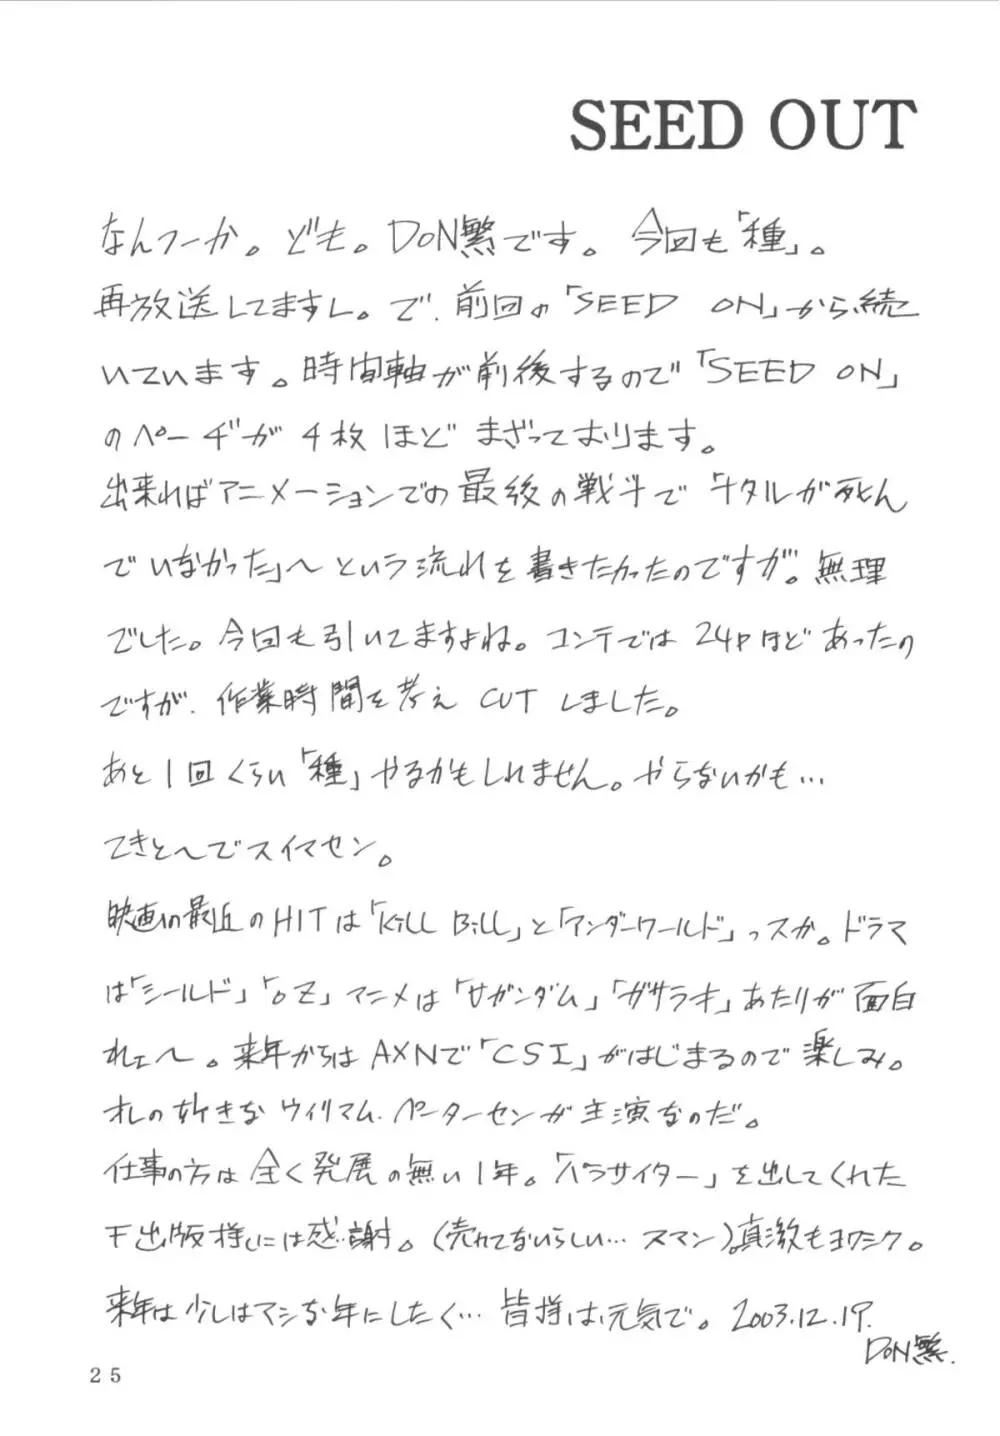 SEED OUT
なんつーか。ども。DON繁です。今回も「種」。
再放送してますし。で、前回の「SEED ON」から続
いています。時間軸が前後するので「SEED ON」
のページが4枚ほどまざっております。
出来ればアニメーションでの最後の戦斗で「ナタルが死ん
でいなかった」〜という流れを書きたかったのですが。無理
でした。今回も引いてますよね。コンテでは24Pほどあったの
ですが、作業時間を考えCUTしました。
あと1回くらい「種」やるかもしれません。やらないかも…
てきと〜でスイマセン。
映画の最近のHITは「Kill Bill」と「アンダーワールド」っスか。ドラマ
は「シールド」「OZ」アニメは「Vガンダム」「ガサラキ」あたりが面白
れェ〜。来年からはAXNで「CSI」がはじまるので楽しみ。
オレの好きなウイリアム.ピーターセンが主演なのだ。
仕事の方は全く発展の無い1年。「パラサイター」を出してくれた
出版様には感謝。(売れてないらしい…スマン)。真激もヨロシク。
来年は少しはマシな年にしたく…皆様は元気で。2003.12.19.
DON繁.
25